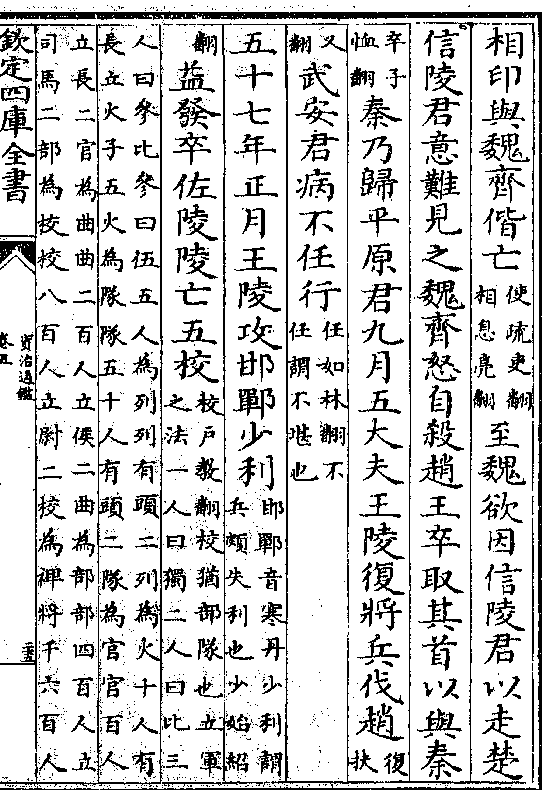 相印與魏齊偕亡使疏吏翻相息亮翻至魏欲因信陵君以走楚
信陵君意難見之魏齊怒自殺趙王卒取其首以與秦
卒子恤翻秦乃歸平原君九月五大夫王陵復將兵伐趙復扶
又翻武安君病不任行任如林翻不任謂不堪也
五十七年正月王陵攻邯鄲少利邯鄲音寒丹少利謂兵頗失利也少始紹
翻益發卒佐陵陵亡五校校戶教翻校猶部隊也立軍之法一人曰獨二人曰比三
人曰參比參曰伍五人為列列有頭二列為火十人有
長立火子五火為隊隊五十人有頭二隊為官官百人
立長二官為曲曲二百人立候二曲為部部四百人立
司馬二部為校校八百人立尉二校為裨將千六百人
欽定四庫全書
資治通鑑
卷五